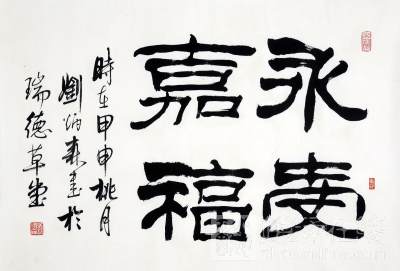 永受
嘉福
時在甲申桃月
劉炳森書於
瑞德草堂